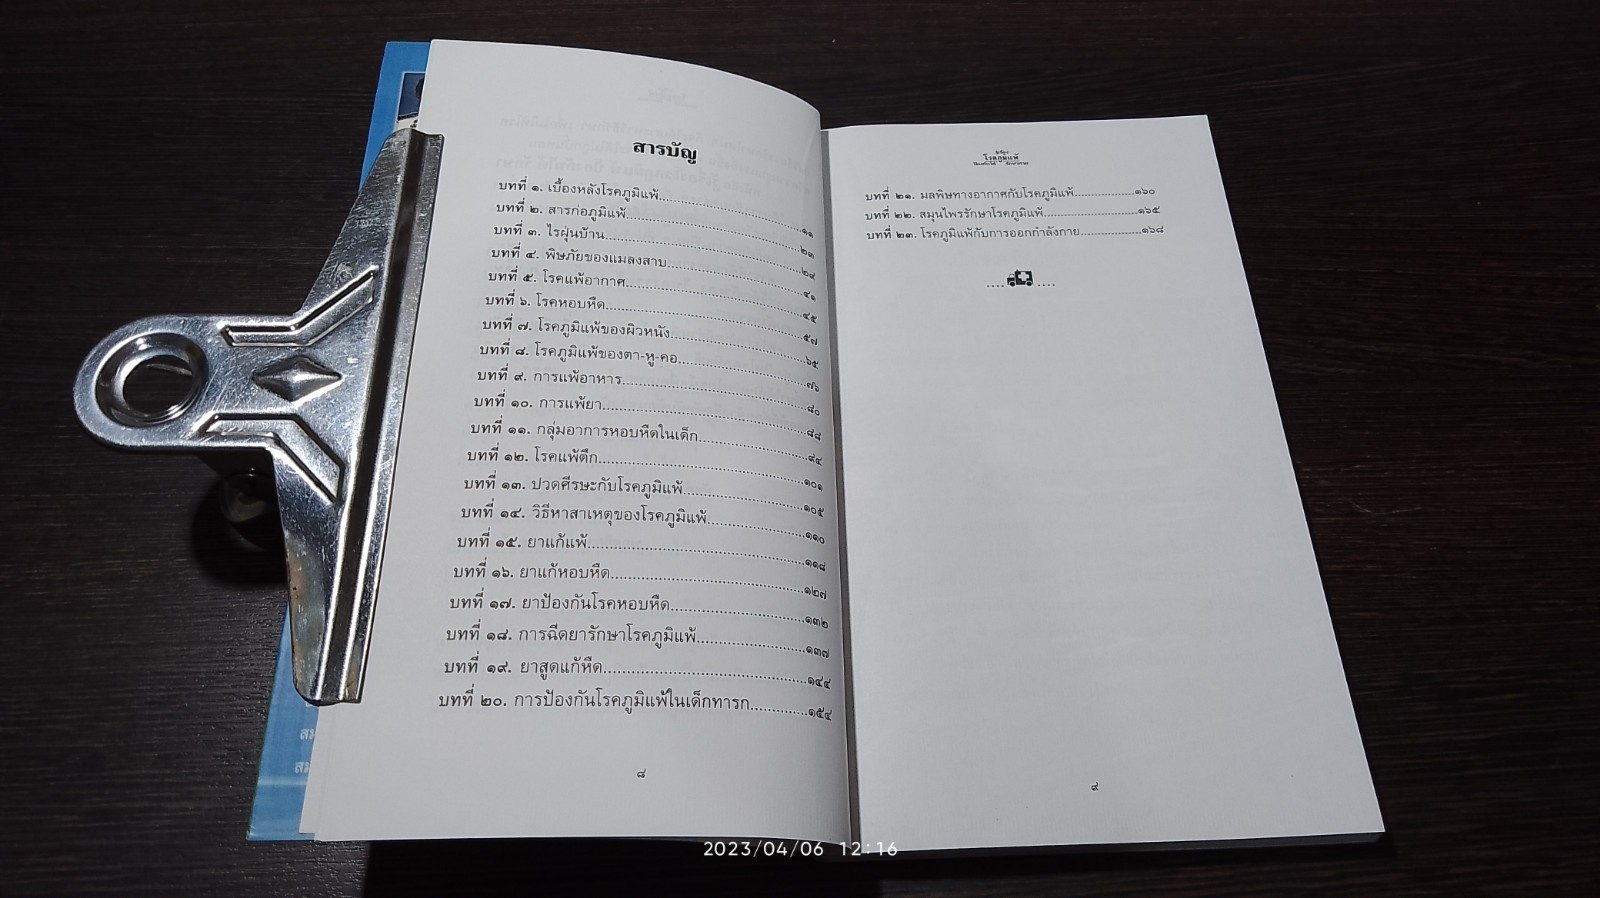 สารบัญ
บทที่ ๑. เบื้องหลังโรคภูมิแพ้..............................๑๑
บทที่ ๒. สารก่อภูมิแพ้..............................๒๓
บทที่ ๓. ไรฝุ่นบ้าน..............................๒๙
บทที่ ๔. พิษภัยของแมลงสาบ..............................๔๑
บทที่ ๕. โรคแพ้อากาศ..............................๔๕
บทที่ ๖. โรคหอบหืด..............................๕๗
บทที่ ๗. โรคภูมิแพ้ของผิวหนัง..............................๖๕
บทที่ ๘. โรคภูมิแพ้ของตา-หู-คอ..............................๗๖
บทที่ ๙. การแพ้อาหาร..............................๘๐
บทที่ ๑๐. การแพ้ยา..............................๘๘
บทที่ ๑๑. กลุ่มอาการหอบหืดในเด็ก..............................๙๔
บทที่ ๑๒. โรคแพ้ตึก..............................๑๐๑
บทที่ ๑๓. ปวดศีรษะกับโรคภูมิแพ้..............................๑๐๕
บทที่ ๑๔. วิธีหาสาเหตุของโรคภูมิแพ้..............................๑๑๐
บทที่ ๑๕. ยาแก้แพ้..............................๑๑๘
บทที่ ๑๖. ยาแก้หอบหืด..............................๑๒๗
บทที่ ๑๗. ยาป้องกันโรคหอบหืด..............................๑๓๒
บทที่ ๑๘. การฉีดยารักษาโรคภูมิแพ้..............................๑๓๗
บทที่ ๑๙. ยาสูดแก้หืด..............................๑๔๔
บทที่ ๒๐. การป้องกันโรคภูมิแพ้ในเด็กทารก.............๑๕๔
๘
โรคภูมิแพ้
บทที่ ๒๑. มลพิษทางอากาศกับโรคภูมิแพ้..................๑๖๐
บทที่ ๒๒. สมุนไพรรักษาโรคภูมิแพ้...........................๑๖๕
บทที่ ๒๓. โรคภูมิแพ้กับการออกกำลังกาย..................๑๖๘
๙
สม
สม
2023/04/06 12:16